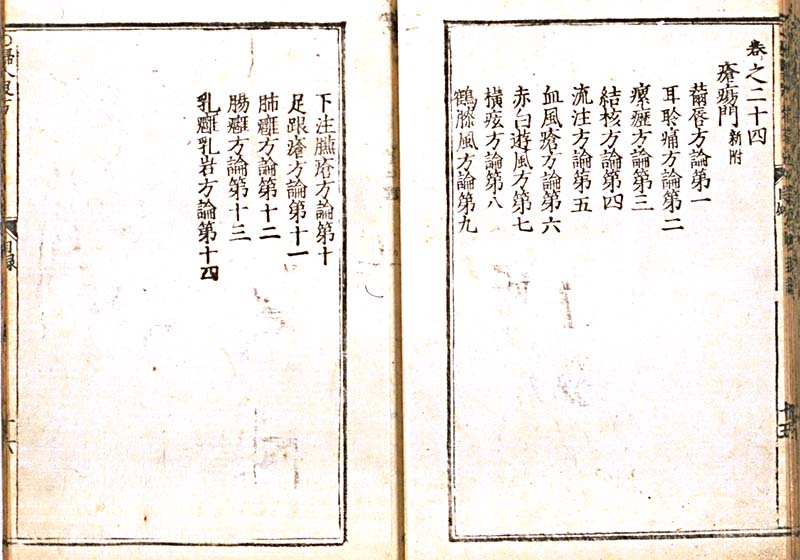 卷之二十四
瘡瘍門 新附
繭唇方論第一
耳聆痛方論第二
瘰癧方論第三
結核方論第四
流注方論第五
血風瘡方論第六
赤白遊風方第七
橫痃方論第八
鶴膝風方論第九
下注臁瘡方論第十
足跟瘡方論第十一
肺癰方論第十二
腸癰方論第十三
乳癰乳岩方論第十四
目録